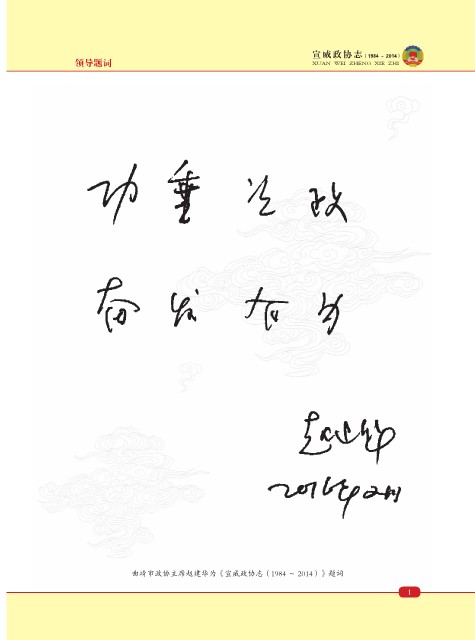 领导题词
宣威政协志（1984 ~ 2014）
XUAN WEI ZHENG XIE ZHI
功垂文政
奋发有为
赵建华
2016年2月
曲靖市政协主席赵建华为《宣威政协志（1984 ~ 2014）》题词
1